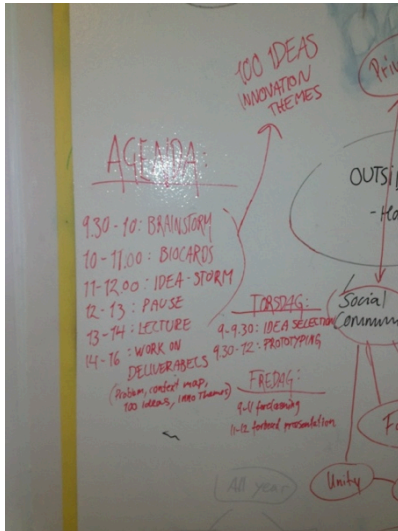 100 IDEAS
INNOVATION
THEMES
AGENDA:
9.30-10: BRAINSTORM
10-11.00: BIOCARDS
11-12.00: IDEA-STORM
12-13: PAUSE
13-14: LECTURE
14-16: WORK ON
DELIVERABELS
(Problem, context map,
100 Ideas, Inno Themes)
TORSDAG:
9-9.30: IDEA SELECTION
9.30-12: PROTOTYPING
FREDAG:
9-11 forelæsning
11-12 forbered præsentation
Social
All year
Unity